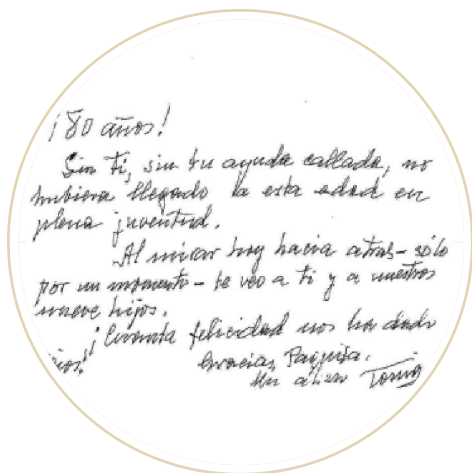 ¡80 años!
Sin Ti, sin tu ayuda callada, no
hubiera llegado a esta edad en
plena juventud.
Al mirar hoy hacia atras - sólo
por un momento - te veo a ti y a nuestros
nueve hijos.
¡Cuanta felicidad nos ha dado
Dios!
Gracias, Paquita.
Un